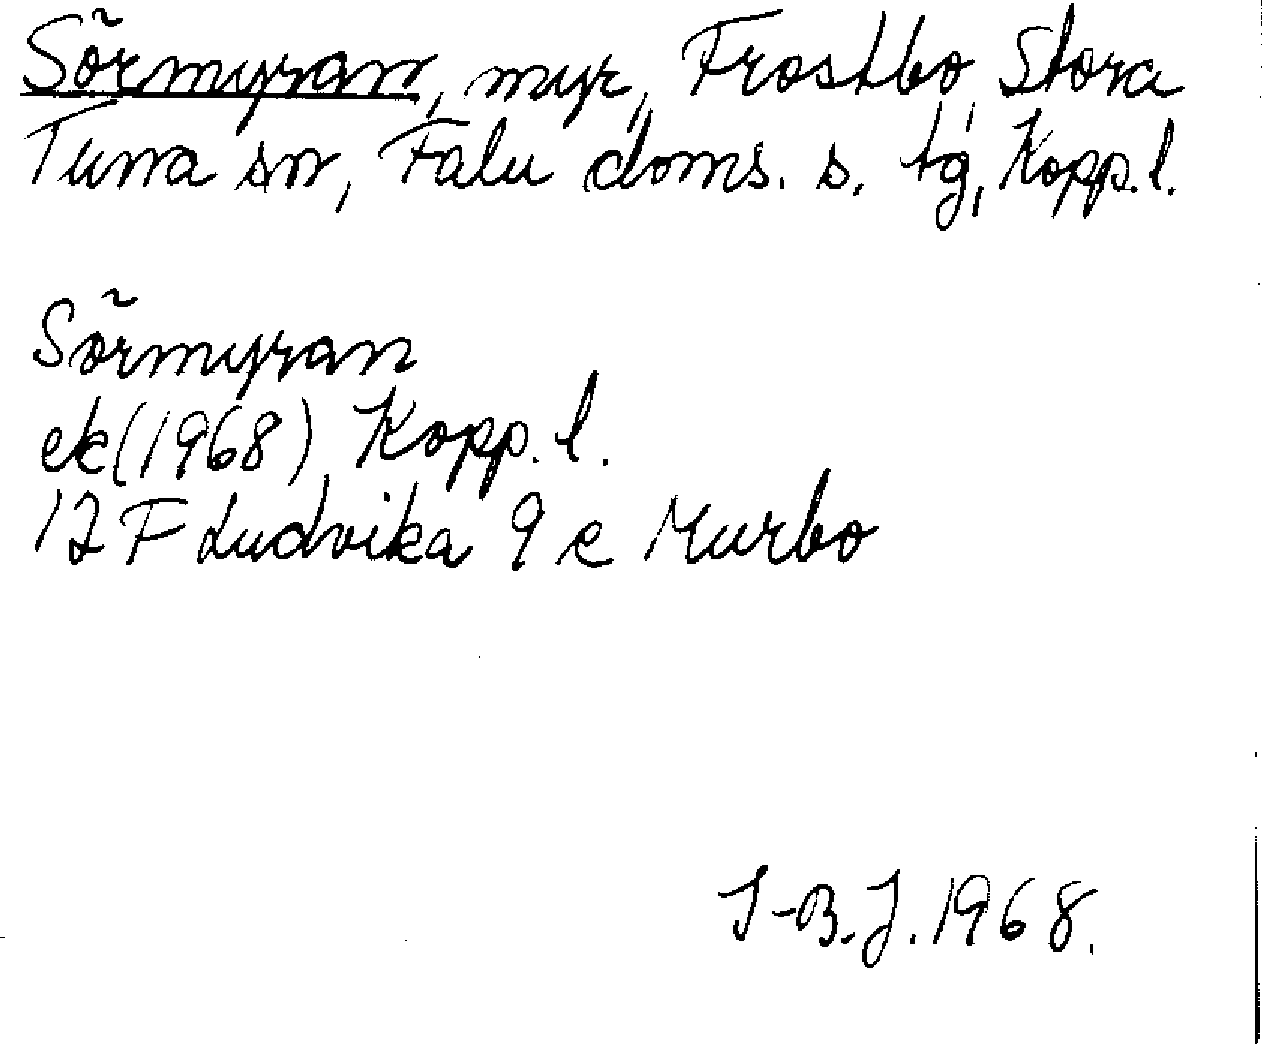 Sörmyran, myr, Frostbo, Stora
Tuna sn, Falu doms. s. tg, Kopp. l.
Sörmyran
ek (1968) Kopp. l.
12 F Ludvika 9 e Murbo
I-B.J. 1968.